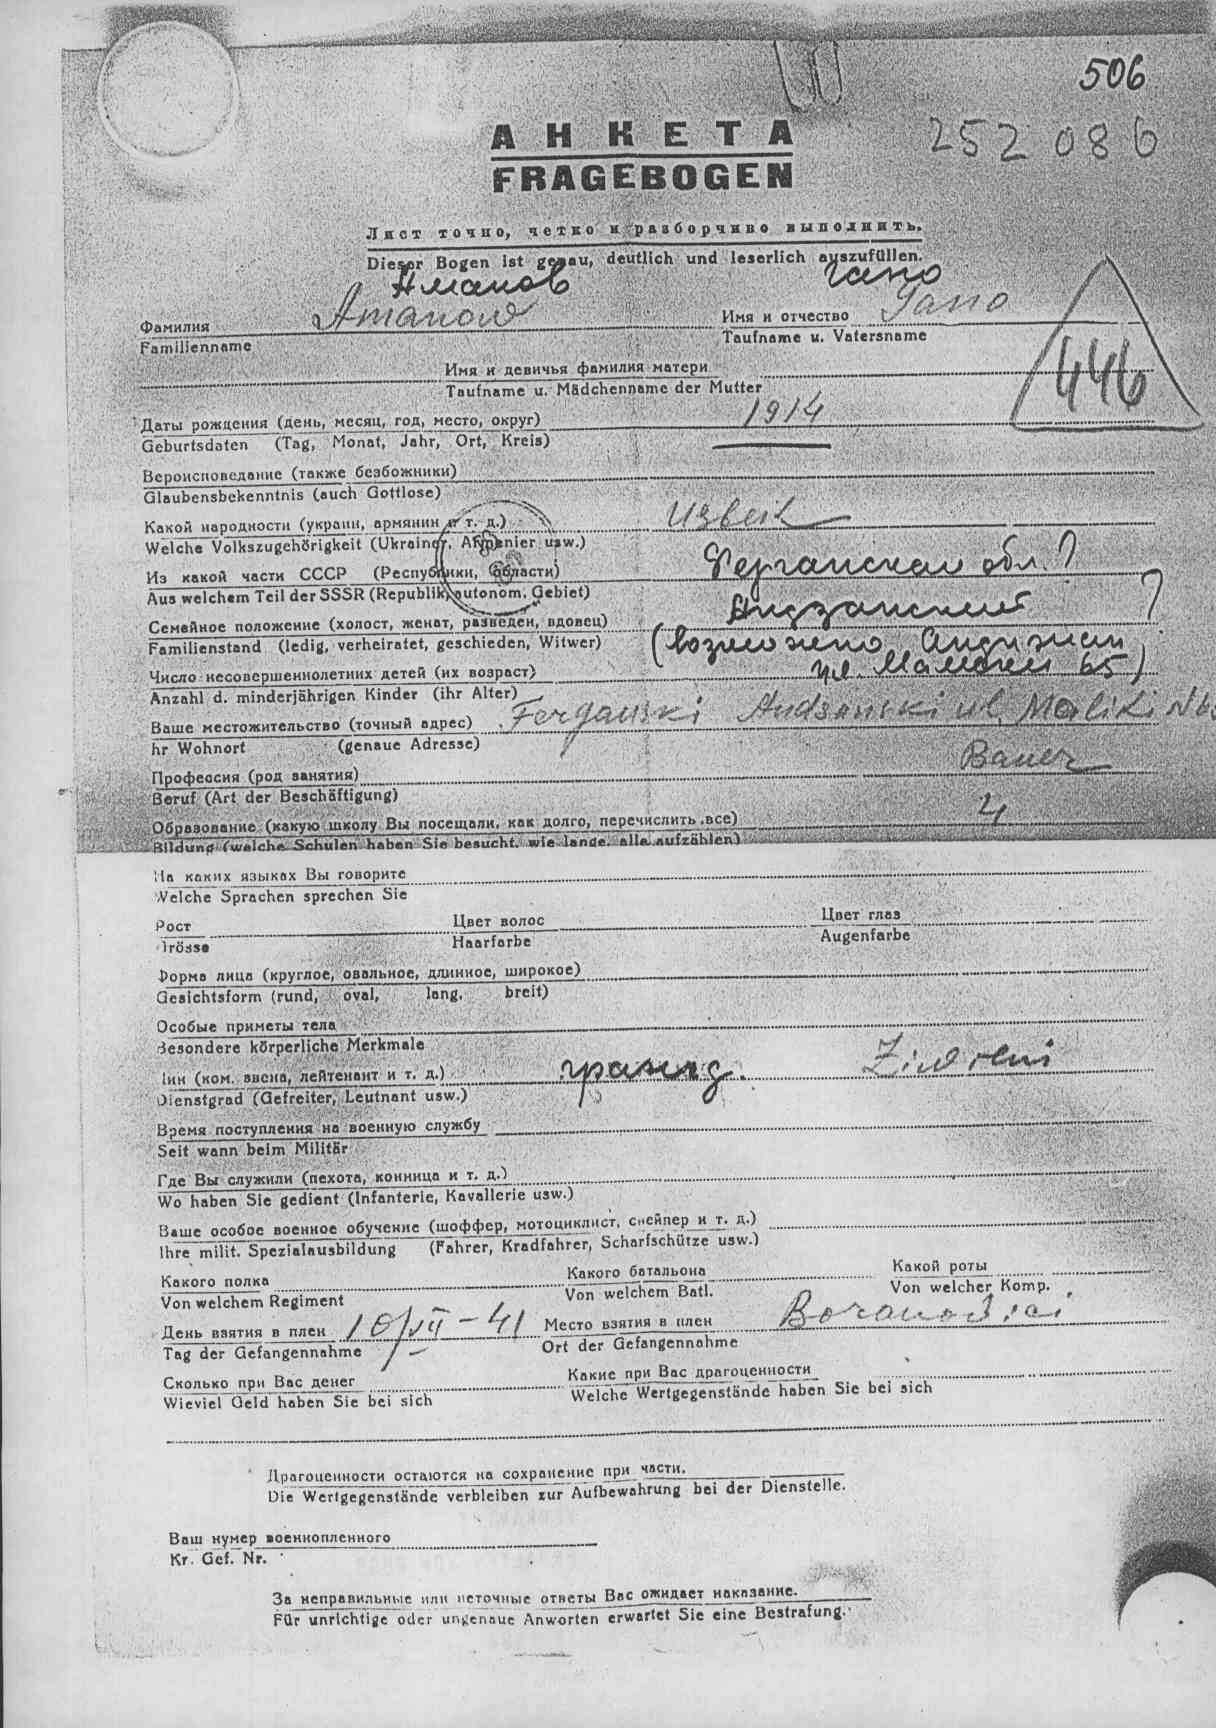 506
252086
АНКЕТА
FRAGEBOGEN
Лист точно, четко и разборчиво выполнить.
Dieser Bogen ist genau, deutlich und leserlich auszufüllen.
Аманов гано
Фамилия Amanow Имя и отчество Gano
Familienname Taufname u. Vatersname
446
Имя и девичья фамилия матери
Taufname u. Mädchenname der Mutter
Даты рождения (день, месяц, год, место, округ) 1914
Geburtsdaten (Tag, Monat, Jahr, Ort, Kreis)
Вероисповедание (также безбожники)
Glaubensbekenntnis (auch Gottlose)
Какой народности (украин, армянин и т. д.) Usbeik
Welche Volkszugehörigkeit (Ukrainer, Armenier usw.)
Из какой части СССР (Республики, области) Ферганская обл. ?
Aus welchem Teil der SSSR (Republik, autonom. Gebiet)
Семейное положение (холост, женат, разведен, вдовец) Андзанский ?
Familienstand (ledig, verheiratet, geschieden, Witwer) (возможно Андижан
Число несовершеннолетних детей (их возраст) ул. 65)
Anzahl d. minderjährigen Kinder (ihr Alter)
Ваше местожительство (точный адрес) Ferganski Andsanski ul. Maliki N 65
hr Wohnort (genaue Adresse)
Профессия (род занятия) Bauer
Beruf (Art der Beschäftigung)
Образование (какую школу Вы посещали, как долго, перечислить все) 4
Bildung (welche Schulen haben Sie besucht, wie lange, alle aufzählen)
На каких языках Вы говорите
Welche Sprachen sprechen Sie
Рост Цвет волос Цвет глаз
Grösse Haarfarbe Augenfarbe
Форма лица (круглое, овальное, длинное, широкое)
Gesichtsform (rund, oval, lang, breit)
Особые приметы тела
Besondere körperliche Merkmale
Чин (ком. звена, лейтенант и т. д.) гражд. Ziwilni
Dienstgrad (Gefreiter, Leutnant usw.)
Время поступления на военную службу
Seit wann beim Militär
Где Вы служили (пехота, конница и т. д.)
Wo haben Sie gedient (Infanterie, Kavallerie usw.)
Ваше особое военное обучение (шоффер, мотоциклист, снейпер и т. д.)
Ihre milit. Spezialausbildung (Fahrer, Kradfahrer, Scharfschütze usw.)
Какого полка Какого батальона Какой роты
Von welchem Regiment Von welchem Batl. Von welcher Komp.
День взятия в плен 10/VII – 41 Место взятия в плен
Tag der Gefangennahme Ort der Gefangennahme
Сколько при Вас денег Какие при Вас драгоценности
Wieviel Geld haben Sie bei sich Welche Wertgegenstände haben Sie bei sich
Драгоценности остаются на сохранение при части.
Die Wertgegenstände verbleiben zur Aufbewahrung bei der Dienstelle.
Ваш нумер военнопленного
Kr. Gef. Nr.
За неправильные или неточные ответы Вас ожидает наказание.
Für unrichtige oder ungenaue Anworten erwartet Sie eine Bestrafung.